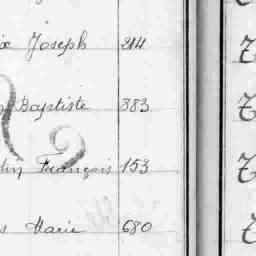 Joseph 214
Baptiste 383
tin François 153
s Marie 680